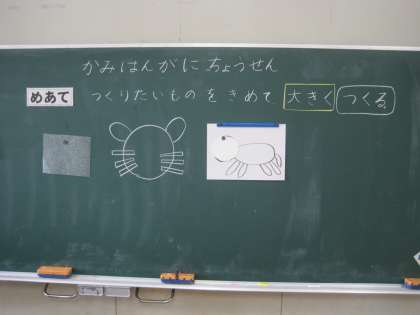 かみはんがにちょうせん
めあて つくりたいものをきめて 大きく つくる